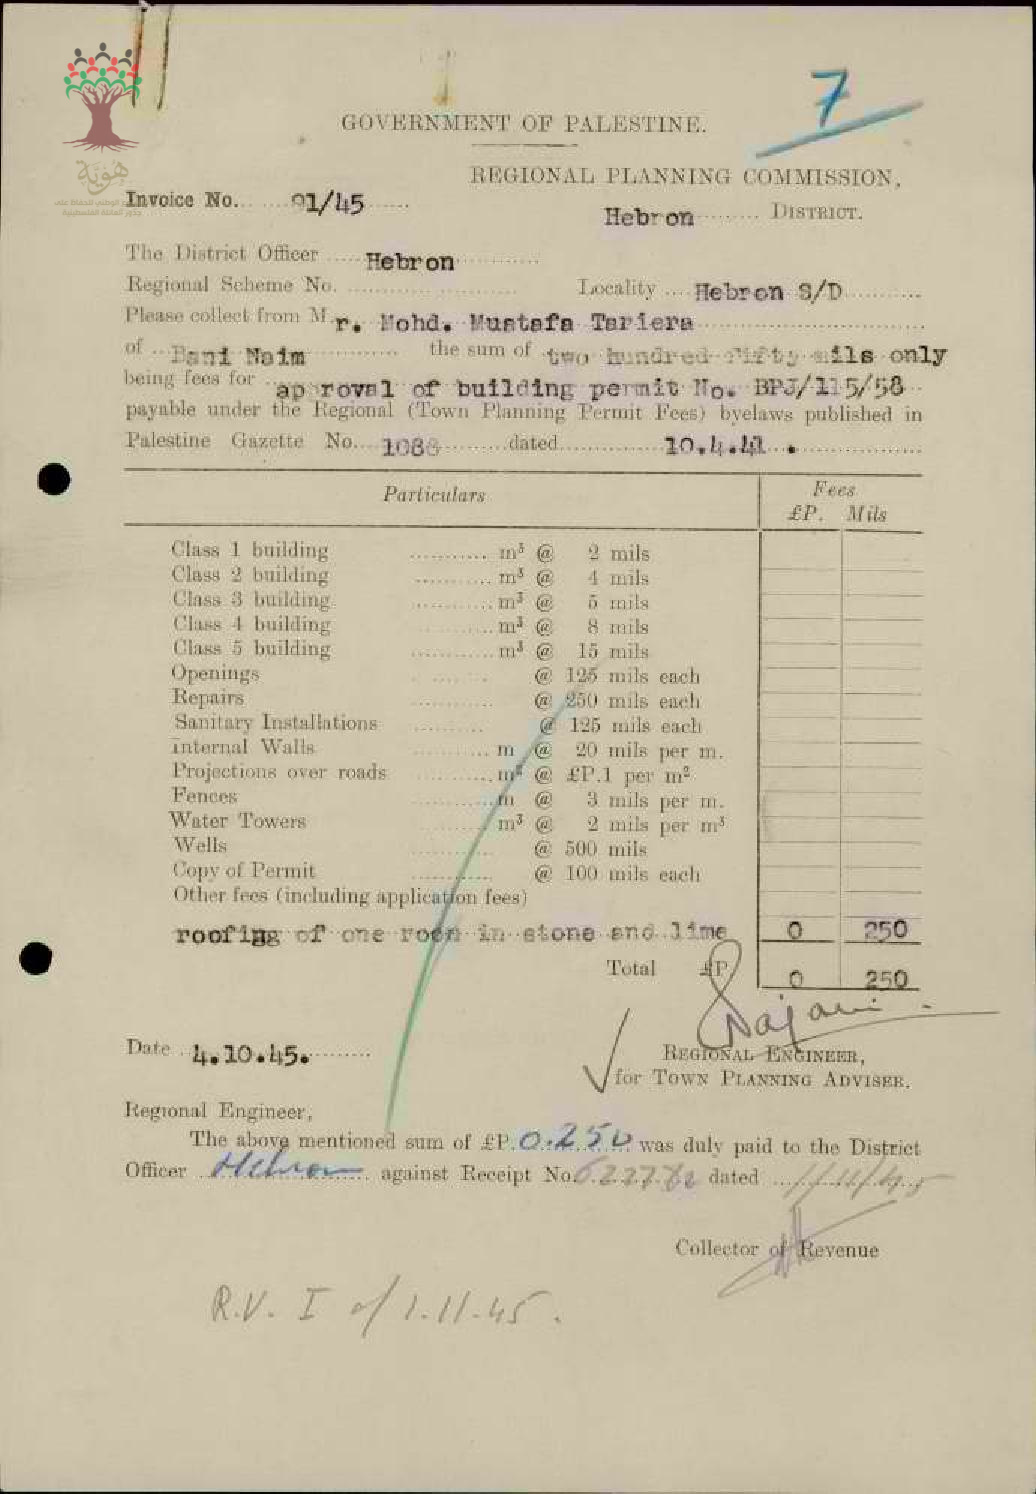 7
GOVERNMENT OF PALESTINE.
REGIONAL PLANNING COMMISSION,
هوية
Invoice No. 91/45
Hebron DISTRICT.
The District Officer Hebron
Regional Scheme No. Locality Hebron S/D
Please collect from Mr. Mohd. Mustafa Tariera
of Bani Naim the sum of two hundred fifty mils only
being fees for approval of building permit No. BPJ/115/58
payable under the Regional (Town Planning Permit Fees) byelaws published in
Palestine Gazette No. 1088 dated 10.4.41.
Particulars Fees
£P. Mils
Class 1 building m³ @ 2 mils
Class 2 building m³ @ 4 mils
Class 3 building m³ @ 5 mils
Class 4 building m³ @ 8 mils
Class 5 building m³ @ 15 mils
Openings @ 125 mils each
Repairs @ 250 mils each
Sanitary Installations @ 125 mils each
Internal Walls m @ 20 mils per m.
Projections over roads m² @ £P.1 per m²
Fences m @ 3 mils per m.
Water Towers m³ @ 2 mils per m³
Wells @ 500 mils
Copy of Permit @ 100 mils each
Other fees (including application fees)
roofing of one room in stone and lime 0 250
Total £P. 0 250
Date 4.10.45.
REGIONAL ENGINEER,
for TOWN PLANNING ADVISER.
Regional Engineer,
The above mentioned sum of £P. 0.250 was duly paid to the District
Officer Hebron against Receipt No. dated 1/11/45
Collector of Revenue
R.V. I of 1.11.45.